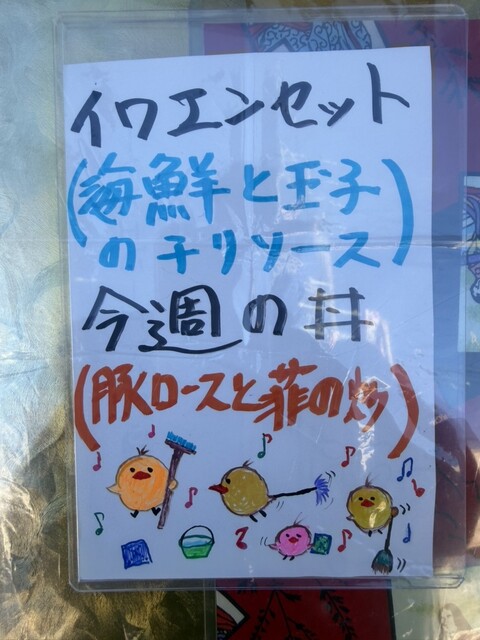 イワエンセット
(海鮮と玉子
のチリソース)
今週の丼
(豚ロースと菲の炒)